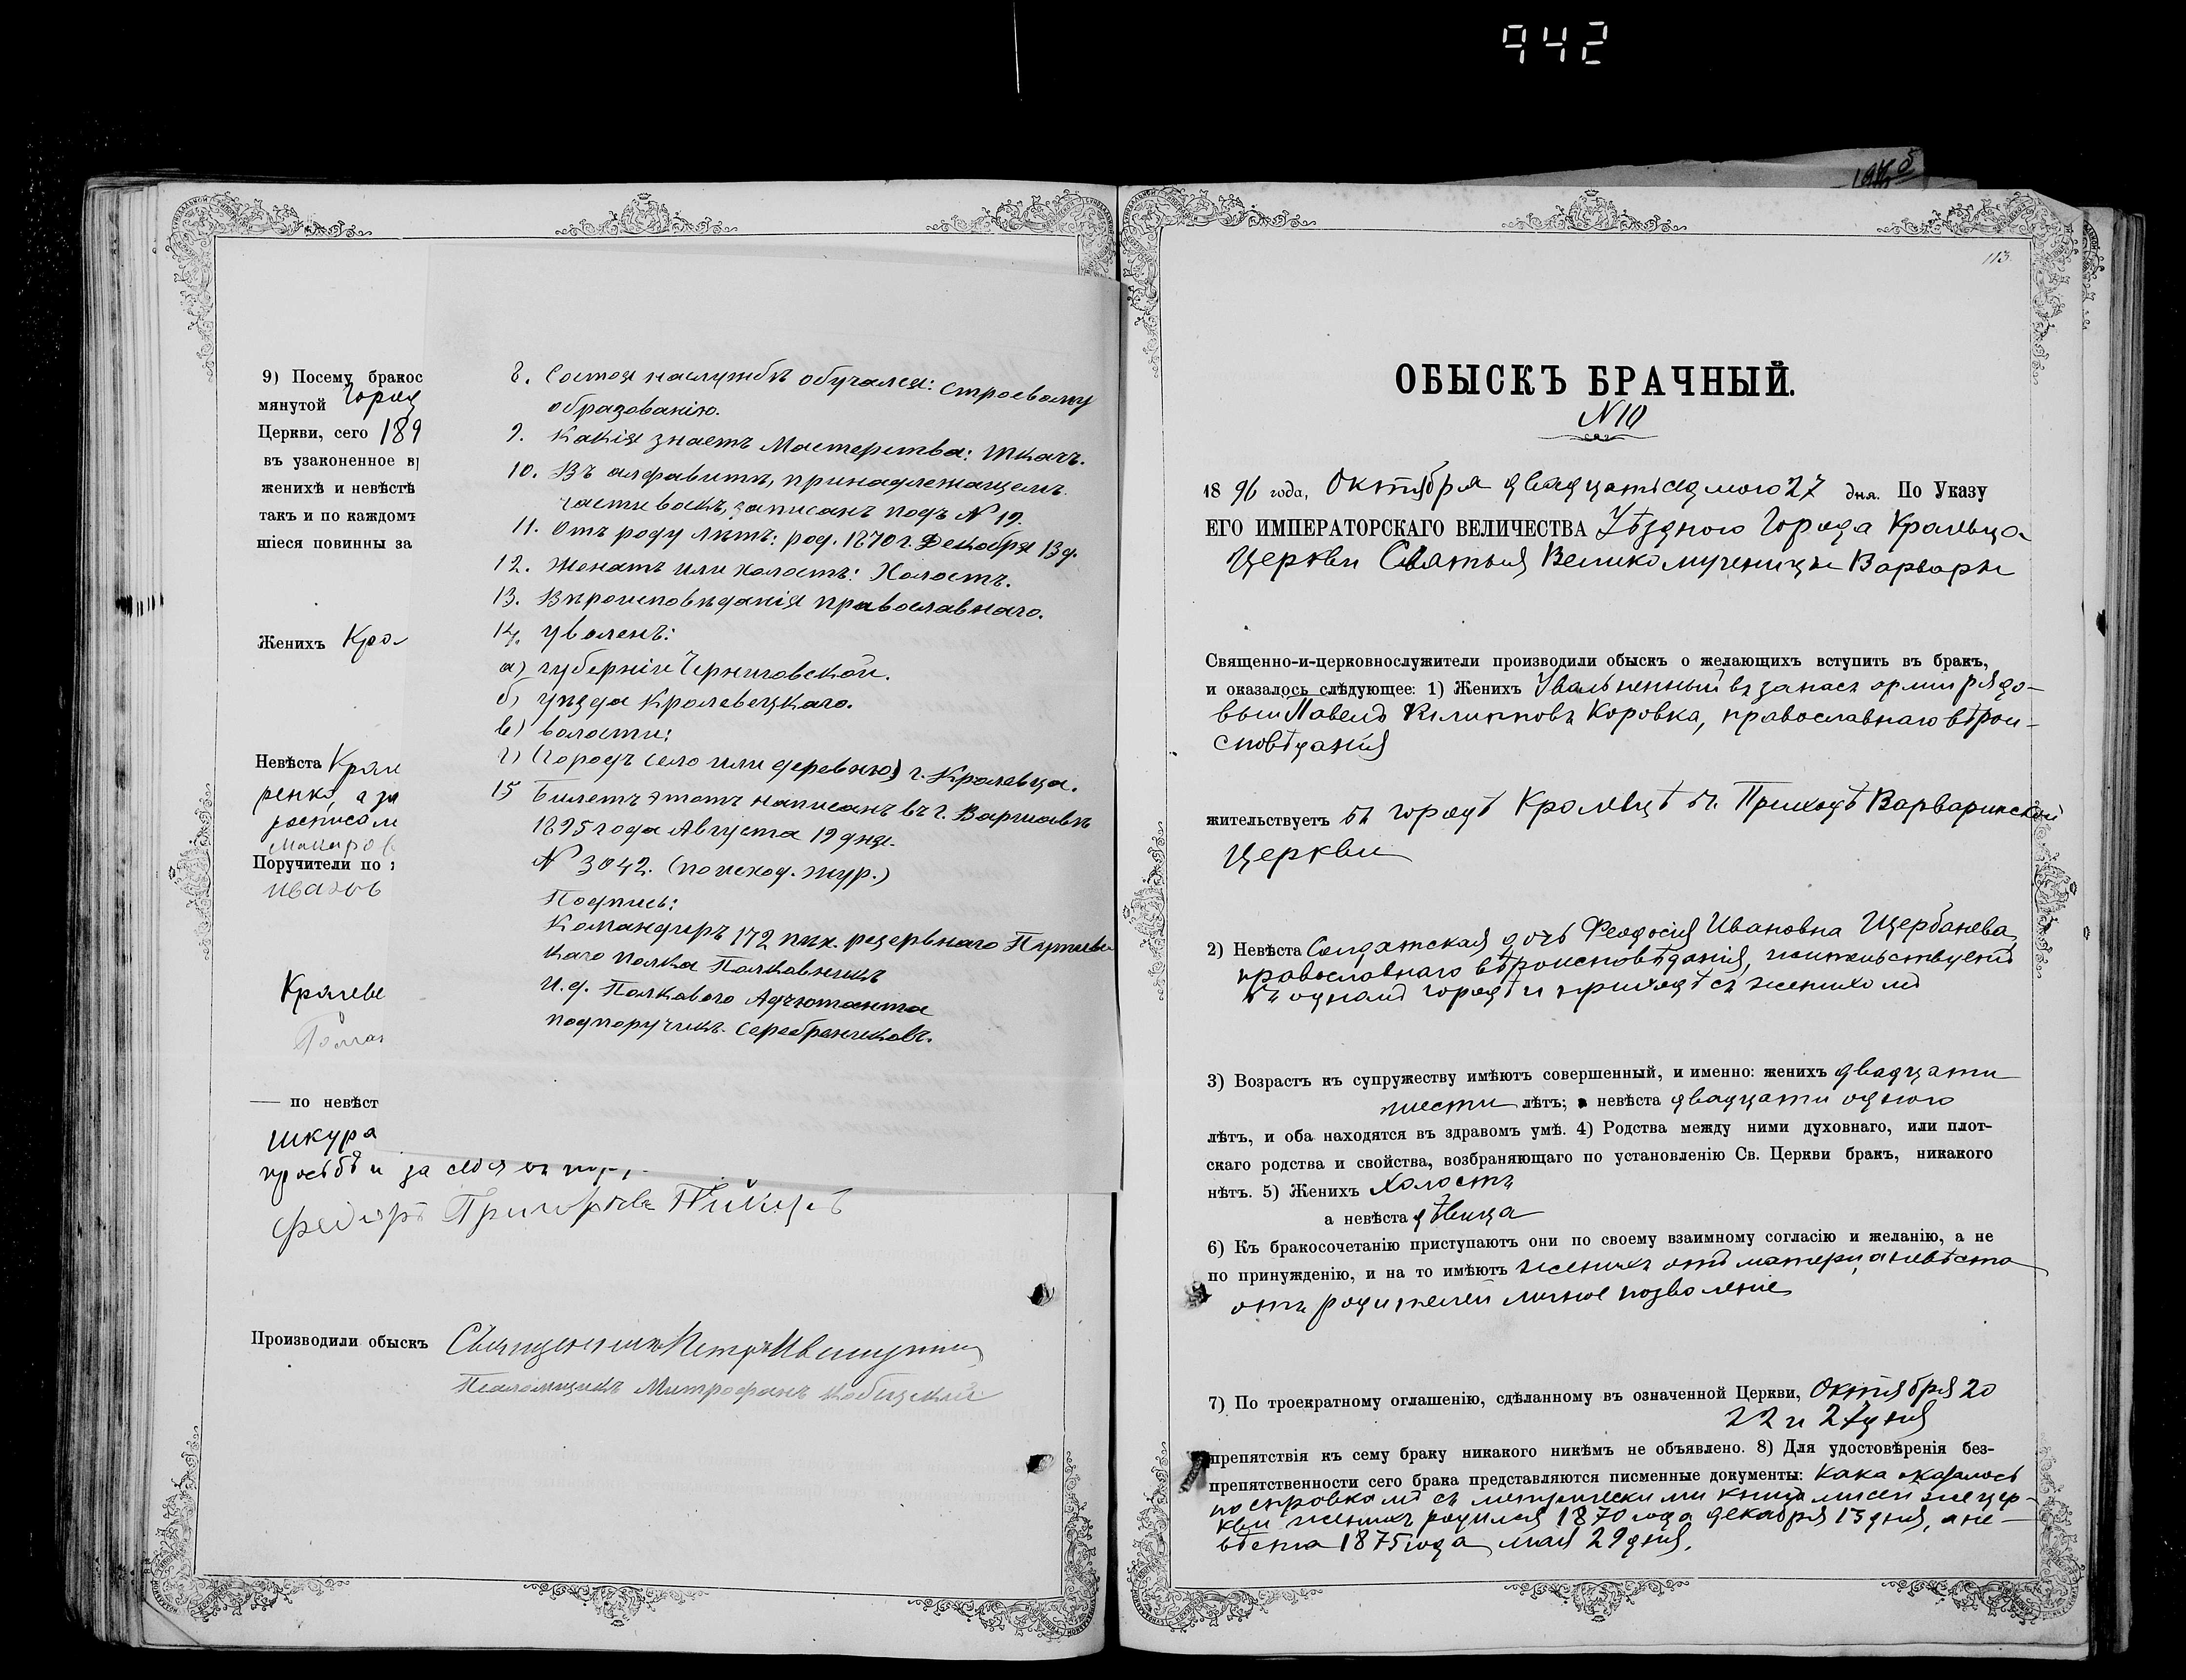 942
9) Посему бракос
мянутой Город
Церкви, сего 189
въ узаконенное в
женихѣ и невѣстѣ
такъ и по каждом
шіеся повинны за
Женихъ Кро
Невѣста
ренко, а за
росписал
Макаров
Поручители по
Иванъ
Кролеве
Роман
— по невѣст
Шкура
просьбѣ и за себя
Федоръ Григорьевъ
Производили обыскъ Священникъ Петръ
Псаломщикъ Митрофанъ
8. Состоя наслужбѣ обучался: строевому
образованію.
9. Какія знаетъ Мастерства: Ткачъ.
10. Въ алфавитѣ, принадлежащемъ
части войскъ, записанъ подъ № 19.
11. Отъ роду лѣтъ: род. 1870 г. Декабря 13 д.
12. Женатъ или холостъ: Холостъ.
13. Вѣроисповѣданія православнаго.
14. Уволенъ:
а) губерніи Черниговской.
б) уѣзда Кролевецкаго.
в) волости:
г) (городъ село или деревню) г. Кролевца.
15 Билетъ этотъ написанъ въ г. Варшавѣ
1895 года Августа 19 дня.
№ 3042. (по исход. жур.)
Подпись:
Командиръ 172 пѣх. резервнаго
каго полка Полковникъ
И. д. Полкового Адъютанта
подпоручикъ Серебренниковъ.
113.
ОБЫСКЪ БРАЧНЫЙ.
N 10
1896 года, Октября двадцатьседмого 27 дня. По Указу
ЕГО ИМПЕРАТОРСКАГО ВЕЛИЧЕСТВА Уѣздного Города Крольвца
Церкви Святыя Великомученицы Варвары
Священно-и-церковнослужители производили обыскъ о желающихъ вступить въ бракъ,
и оказалось слѣдующее: 1) Женихъ Увольненный въ запасъ арміи рядо-
вый Павелъ Филипповъ Коровка, православнаго вѣрои-
сповѣданія
жительствуетъ въ городѣ Кролевцѣ въ Приходѣ Варваринской
Церкви
2) Невѣста Солдатская дочь Феодосія Ивановна Щербанева,
православнаго вѣроисповѣданія, жительствуетъ
въ одномъ городѣ и приходѣ съ женихомъ
3) Возрастъ къ супружеству имѣютъ совершенный, и именно: женихъ двадцати
шести лѣтъ; а невѣста двадцати одного
лѣтъ, и оба находятся въ здравомъ умѣ. 4) Родства между ними духовнаго, или плот-
скаго родства и свойства, возбраняющаго по установленію Св. Церкви бракъ, никакого
нѣтъ. 5) Женихъ Холостъ
а невѣста дѣвица
6) Къ бракосочетанію приступаютъ они по своему взаимному согласію и желанію, а не
по принужденію, и на то имѣютъ женихъ отъ матери, а невѣста
отъ родителей личное позволеніе
7) По троекратному оглашенію, сдѣланному въ означенной Церкви, Октября 20
22 и 27 дня
препятствія къ сему браку никакого никѣмъ не объявлено. 8) Для удостовѣренія без-
препятственности сего брака представляются писменные документы: Кака оказалось
по справкамъ съ метрическими книгами сей же цер-
кви женихъ родился 1870 года декабря 13 дня, а не-
вѣста 1875 года мая 29 дня.